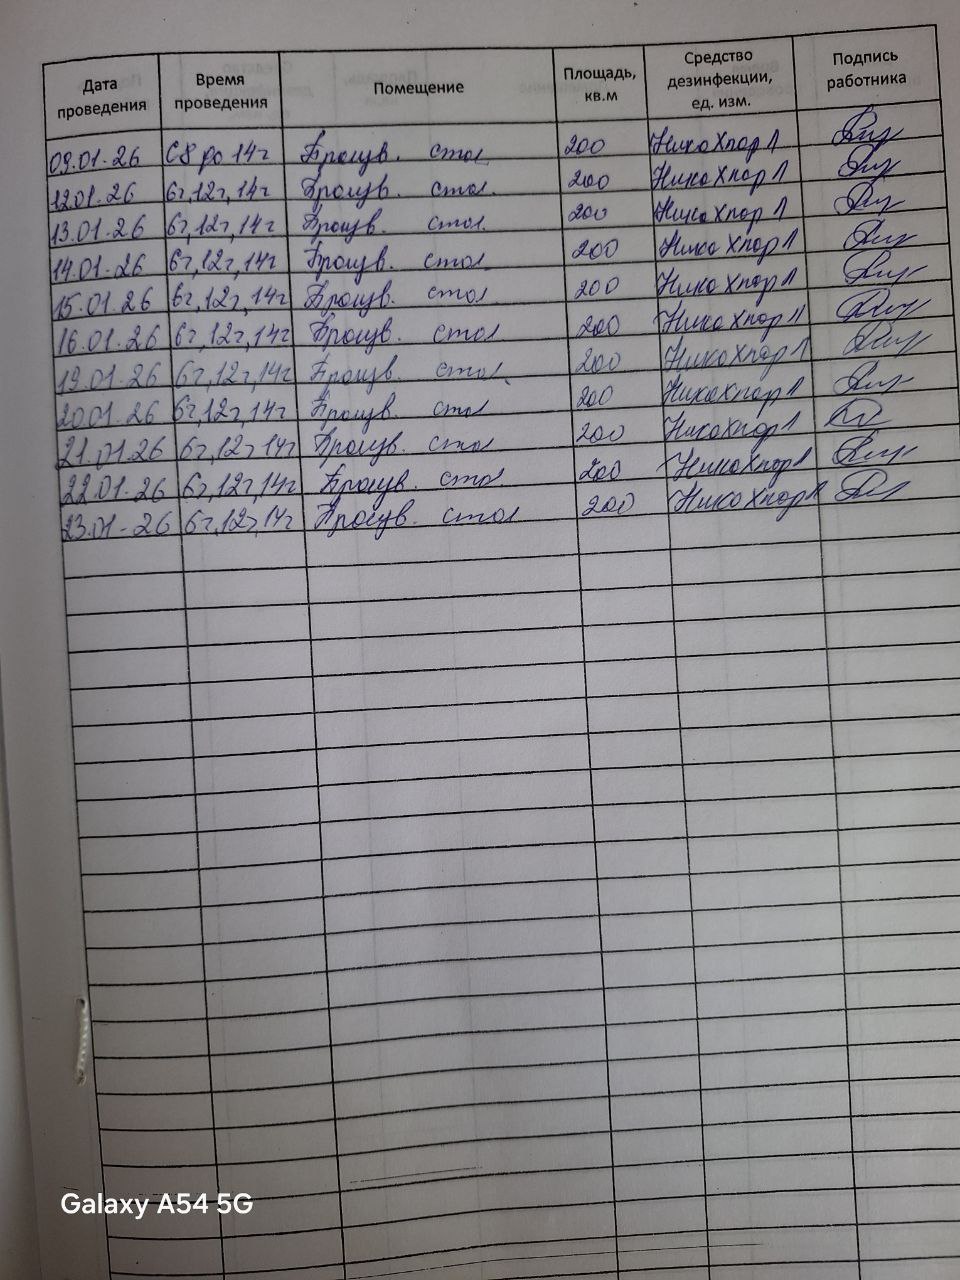 Дата проведения Время проведения Помещение Площадь, кв.м Средство дезинфекции, ед. изм. Подпись работника
09.01.26 С 8 до 14ч Произв. стол 200 НикаХлор Л
12.01.26 6ч,12ч,14ч Произв. стол. 200 НикаХлор Л
13.01.26 6ч,12ч,14ч Произв. стол. 200 НикаХлор Л
14.01.26 6ч,12ч,14ч Произв. стол 200 НикаХлор Л
15.01.26 6ч,12ч,14ч Произв. стол 200 НикаХлор Л
16.01.26 6ч,12ч,14ч Произв. стол 200 НикаХлор Л
19.01.26 6ч,12ч,14ч Произв. стол 200 НикаХлор Л
20.01.26 6ч,12ч,14ч Произв. стол 200 НикаХлор Л
21.01.26 6ч,12ч,14ч Произв. стол 200 НикаХлор Л
22.01.26 6ч,12ч,14ч Произв. стол 200 НикаХлор Л
23.01.26 6ч,12ч,14ч Произв. стол 200 НикаХлор Л
Galaxy A54 5G